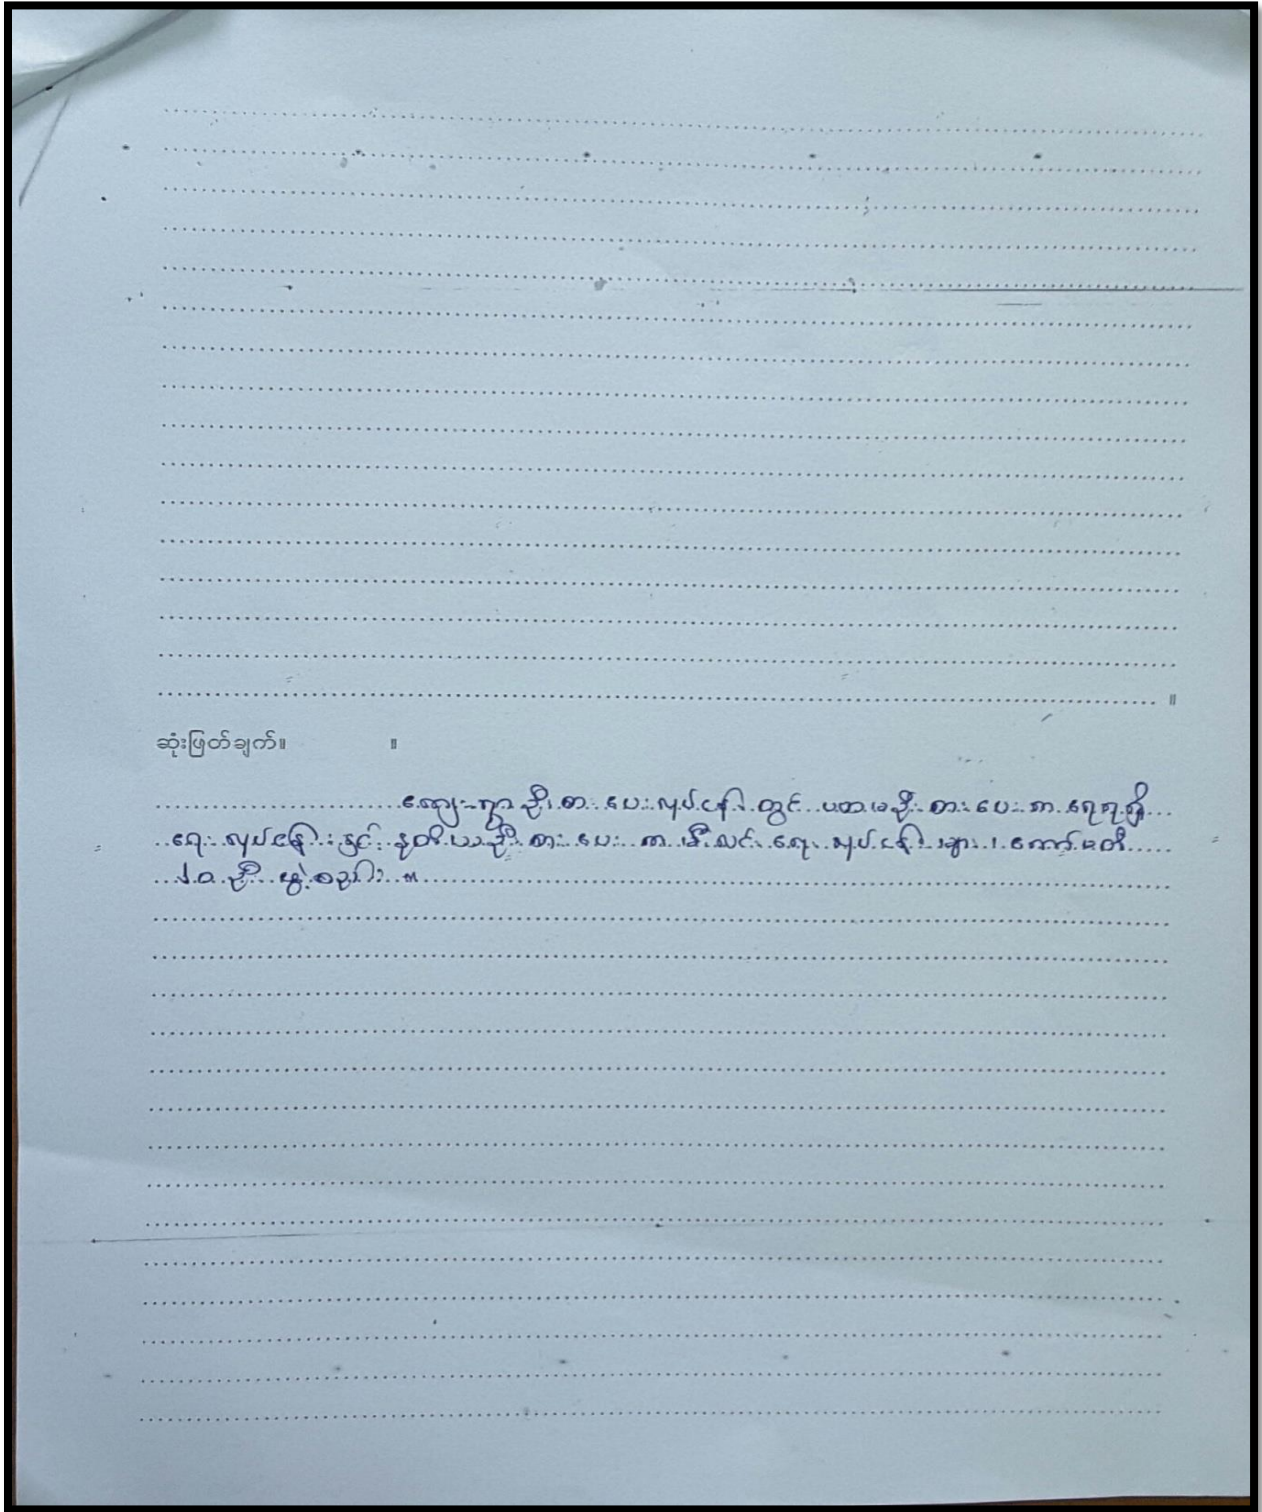 ။
ဆုံးဖြတ်ချက်။ ။
ကျေးရွာဦးစားပေးလုပ်ငန်းတွင် ပထမဦးစားပေးက ရေရရှိ
ရေးလုပ်ငန်းနှင့် ဒုတိယဦးစားပေးက မီးလင်းရေးလုပ်ငန်းများ ၊ ကော်မတီ
ဦး ဖွဲ့စည်းပါ ။